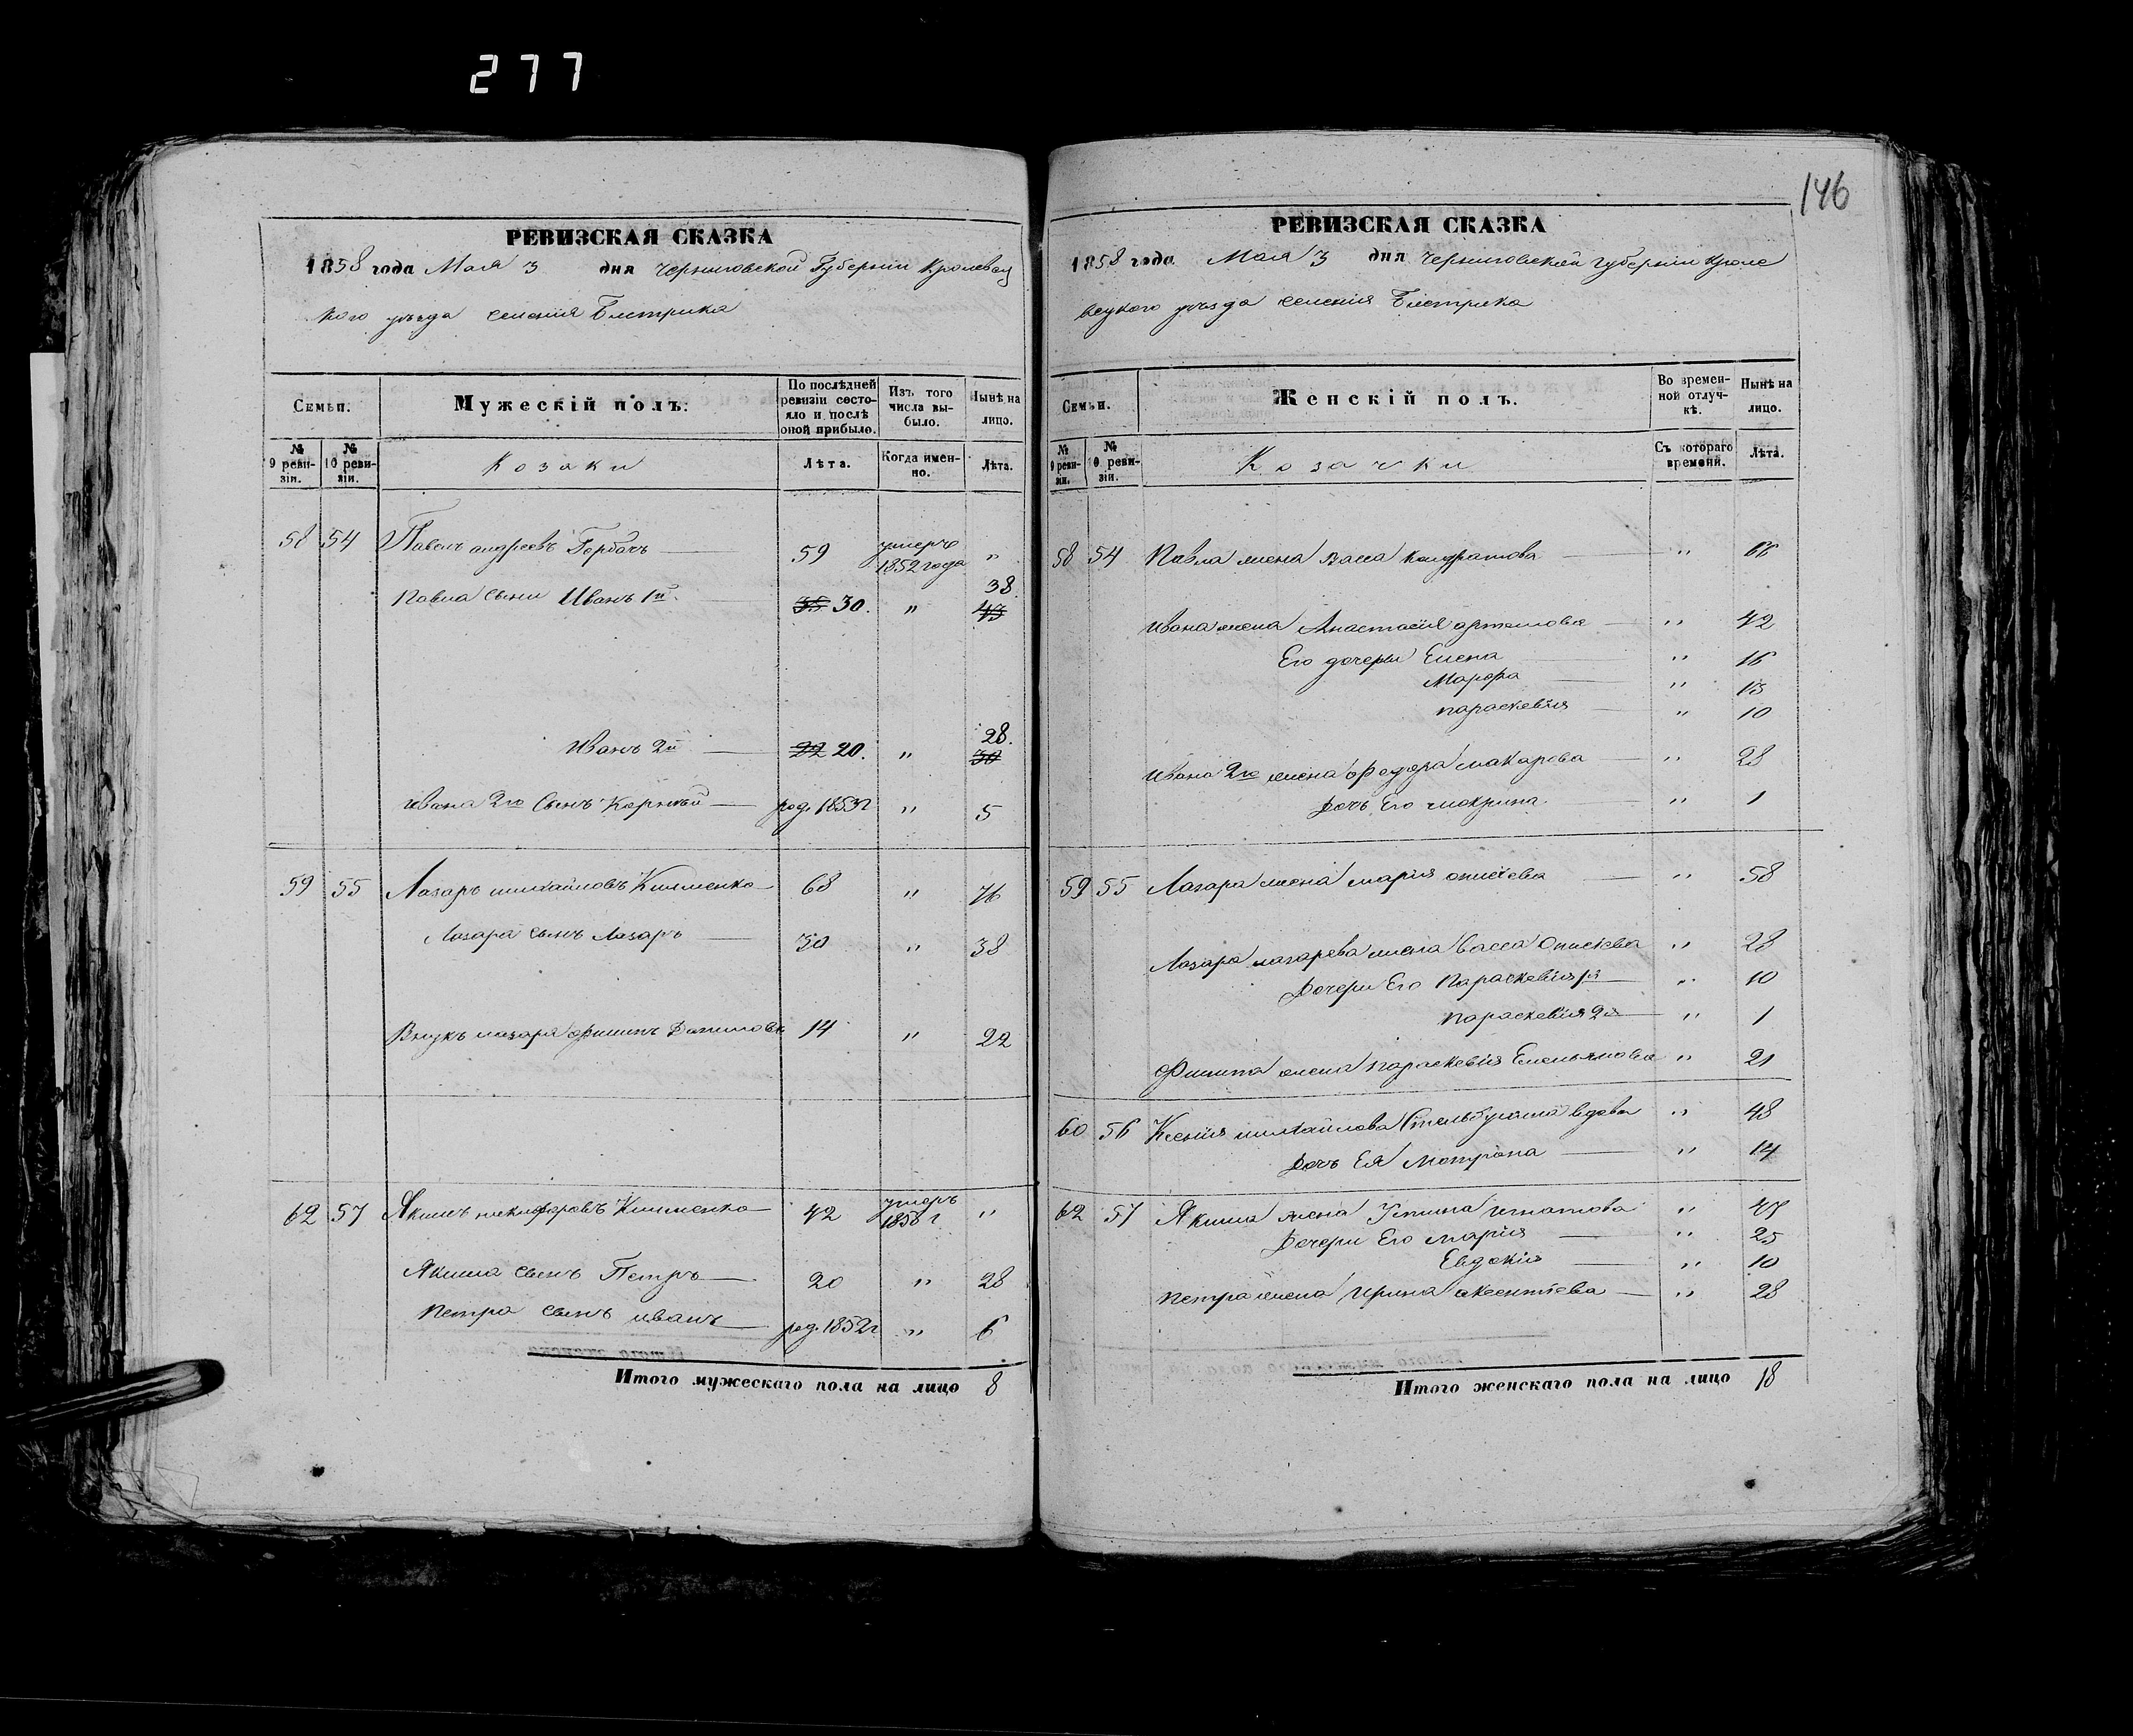 277
146
РЕВИЗСКАЯ СКАЗКА
1858 года Мая 3 дня Черниговской Губерніи Кролевец
кого уѣзда селенія Быстрика
Семьи.
Мужескій полъ.
По послѣдней ревизіи состояло и послѣ оной прибыло.
Изъ того числа выбыло.
Нынѣ на лицо.
№ 9 ревизіи.
№ 10 ревизіи.
Козаки
Лѣта.
Когда именно.
Лѣта.
58 54 Павелъ андреевъ Горбачъ 59 умеръ 1852 года "
Павла сыни Иванъ 1й 35 30. " 38 43
Иванъ 2й 22 20. " 28. 30
Ивана 2го Сынъ Корнѣй род. 1853 г " 5
59 55 Лазаръ михайловъ Клименко 68 " 76
Лазара сынъ Лазаръ 30 " 38
Внукъ лазаря филипъ 14 " 22
62 57 Якимъ никифоровъ Клименко 42 умеръ 1858 г "
Якима сынъ Петръ 20 " 28
Петра сынъ иванъ род. 1852 г " 6
Итого мужескаго пола на лицо 8
РЕВИЗСКАЯ СКАЗКА
1858 года Мая 3 дня Черниговской губерніи Кроле
вецкого уѣзда селенія Быстрика
Семьи.
Женскій полъ.
Во временной отлучкѣ.
Нынѣ на лицо.
№ 9 ревизіи.
№ 10 ревизіи.
Козачки
Съ котораго времени.
Лѣта.
58 54 Павла жена Васса кондратова " 66
Ивана жена Анастасія артемова " 42
Его дочери Елена " 16
Марфа " 13
параскевія " 10
Ивана 2го жена федора макарова " 28
Дочь Его мокрина " 1
59 55 Лазара жена марія " 58
Лазара лазарева жена васса " 28
Дочери Его Параскевія 1я " 10
Параскевія 2я " 1
Филипа жена параскевія Емельянова " 21
60 56 Ксенія михайлова вдова " 48
Дочь Ея Мотрона " 14
62 57 Якима жена Устина игнатова " 47
Дочери Его марія " 25
Евдокія " 10
Петра жена Ирина " 28
Итого женскаго пола на лицо 18